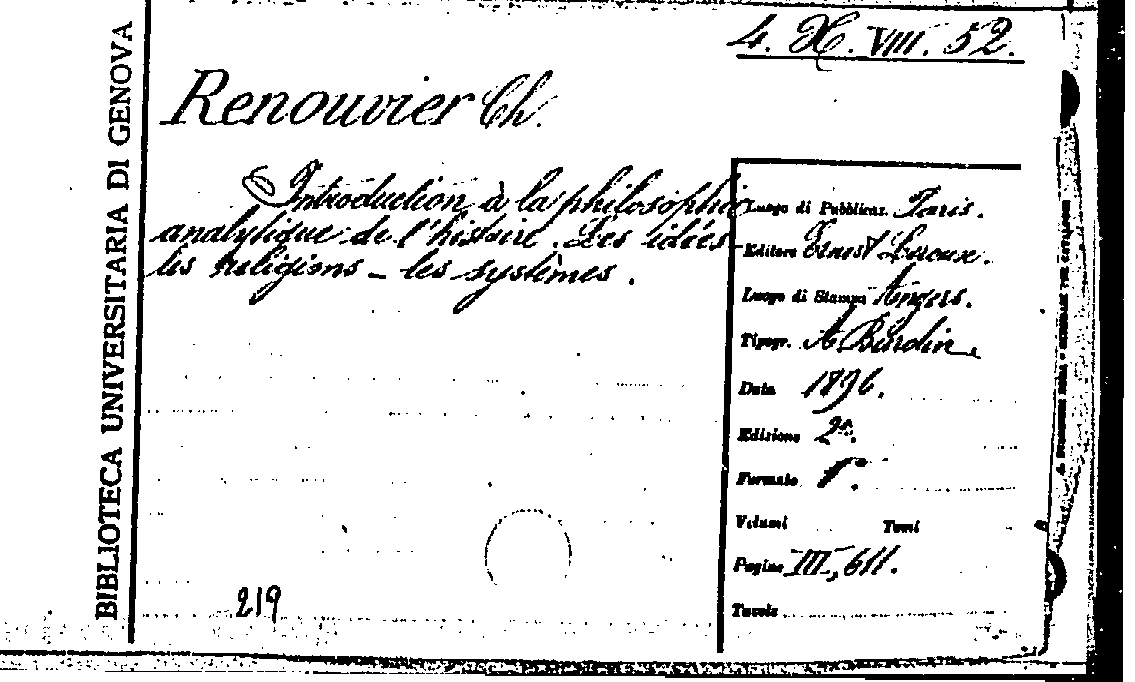 BIBLIOTECA UNIVERSITARIA DI GENOVA
4. H. VIII. 52.
Renouvier Ch.
Introduction à la philosophie
analytique de l'histoire. Les idées –
les religions – les systèmes.
Luogo di Pubblicaz. Paris.
Editore Ernest Leroux.
Luogo di Stampa Angers.
Tipogr. A. Burdin
Data 1896.
Edizione 2ª.
Formato 8°.
Volumi Tomi
Pagine III, 611.
Tavole
219